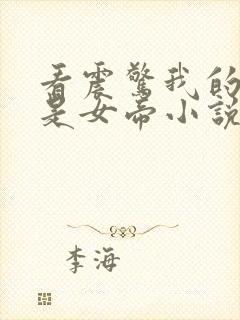 看震驚我的
是女帝小說
李海